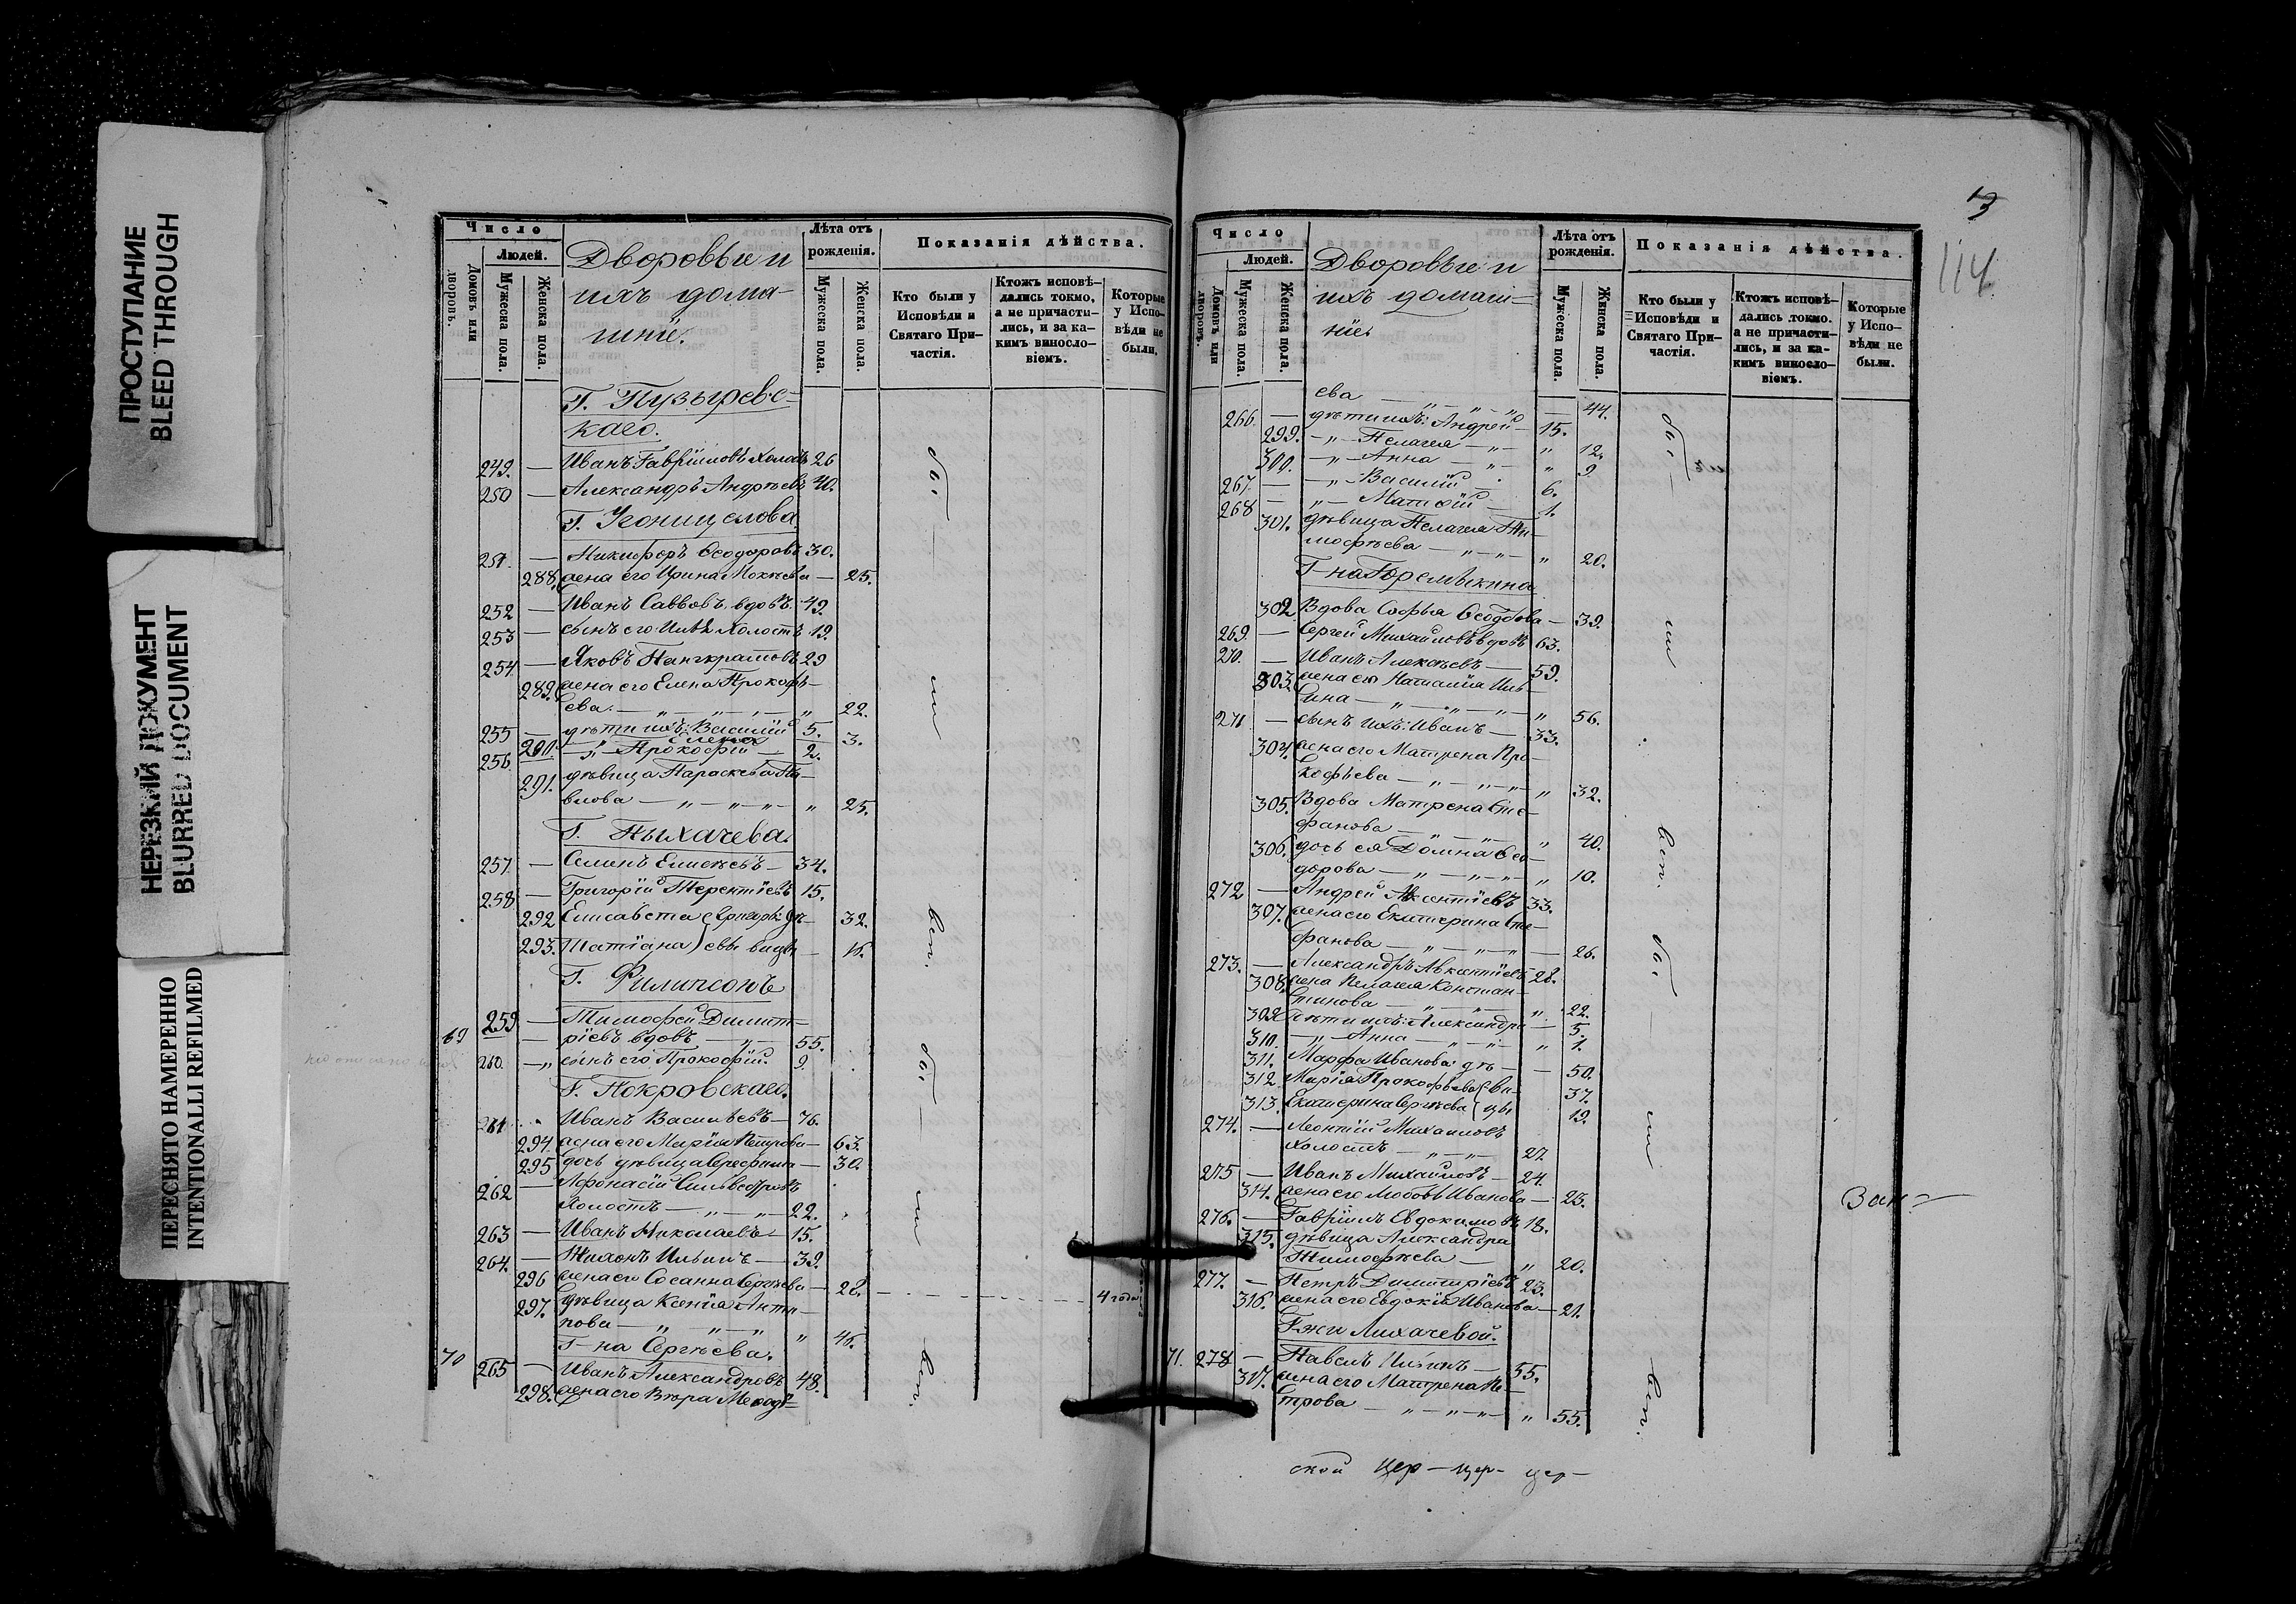 ПРОСТУПАНИЕ
BLEED THROUGH
НЕРЕЗКИЙ ДОКУМЕНТ
BLURRED DOCUMENT
ПЕРЕСНЯТО НАМЕРЕННО
INTENTIONALLI REFILMED
Число
Людей.
Домовъ или дворовъ.
Мужеска пола.
Женска пола.
Дворовые и
ихъ дома-
шніе.
Лѣта отъ рожденія.
Мужеска пола.
Женска пола.
Показанія дѣйства.
Кто были у Исповѣди и Святаго Причастія.
Ктожъ исповѣ-дались токмо, а не причасти-лись, и за ка-кимъ винословіемъ.
Которые у Испо-вѣди не были.
Г. Пузыревс-
каго.
249. — Иванъ Гавріиловъ холостъ 26
250 — Александръ Андреевъ 40.
251. — Никифоръ Ѳеодоровъ 30.
288. жена его Ирина Мокѣева — 25.
252 — Иванъ Саввовъ вдовъ 49.
253 — сынъ его Илья холостъ 19.
254 — Яковъ Панкратовъ 29
289. жена его Елена Прокофь-
ева — „ — „ — „ 22.
255 — дѣти ихъ: Василій 5.
290. Елена 3.
256 — „ Прокофій — 2.
291. дѣвица Параскева Па-
влова — „ — „ — „ 25.
Г. Пыхачева.
257. — Семенъ Елисѣевъ — 34.
258 — Григорій Терентіевъ 15.
292 Елисавета Григорь- дѣ- 32.
293. Татіана евы вицы — 16.
Г. Филипсонъ
69 259 — Тимофей Димит-
ріевъ вдовъ — „ — 55.
260. — „ сынъ его Прокофій. 9.
Г. Покровскаго.
261 Иванъ Васильевъ — 76.
294 жена его Марія Петрова — 63.
295 дочь дѣвица Серафима — 30.
262 — Афонасій Сильвестровъ
холостъ — „ — „ — 22.
263 — Иванъ Николаевъ 15.
264. — Тихонъ Ильинъ — 39.
296 жена его Сосанна Сергѣева — 28.
297. дѣвица Ксенія Анти-
пова — „ „ — „ „ 46.
4 года
Г-на Сергѣева.
70 265 — Иванъ Александровъ 48.
298. жена его Вѣра Меѳодь-
бы —
ли
вст.
бы —
ли
вст.
3
114
Число
Людей.
Домовъ или дворовъ.
Мужеска пола.
Женска пола.
Дворовые и
ихъ домаш-
ніе.
Лѣта отъ рожденія.
Мужеска пола.
Женска пола.
Показанія дѣйства.
Кто были у Исповѣди и Святаго Причастія.
Ктожъ исповѣ-дались токмо. а не причасти-лись, и за ка-кимъ винословіемъ.
Которые у Испо-вѣди не были.
ева — „ — „ — „ — 44.
266. — дѣти ихъ: Андрей — 15.
299. — „ — Пелагея — „ — „ 12.
300. — „ — Анна — „ — „ 9
267. — — „ — Василій — 6.
268 — „ — Матѳій — 1.
301. дѣвица Пелагея Ти-
мофѣева — „ — „ — „ 20.
Г-на Горемыкина
302 Вдова Софья Ѳеодорова — 39.
269 — Сергей Михайловъ вдовъ 63.
270. — Иванъ Алексѣевъ — 59.
303. жена его Наталія Иль-
ина — „ — „ — „ — „ 56.
271 — сынъ ихъ: Иванъ — 33.
304. жена его Матрена Про-
кофьева — „ — „ — „ „ 32.
305. Вдова Матрена Сте-
фанова — „ — „ — „ 40.
306. дочь ея Домна Ѳео-
дорова — „ — „ — „ „ 10.
272 — Андрей Авксентіевъ 33.
307. жена его Екатерина Сте-
фанова — „ — „ — „ — 26.
273. — Александръ Авксентіевъ 28.
308. жена Пелагея Констан-
тинова — „ — „ — „ „ 22.
309. дѣти ихъ: Александра — 5.
310. — „ — Анна — „ — „ „ 1.
311. Марфа Иванова дѣ- — 50.
312 Марія Прокофьева ви- 37.
313. Екатерина Сергѣева цы 19.
274. — Леонтій Михаиловъ
холостъ — „ — „ — 27.
275 — Иванъ Михайловъ — 24.
314. жена его Любовь Иванова — 23.
276. — Гавріилъ Евдокимовъ 18.
315. дѣвица Александра
Тимофѣева — „ 20.
277. — Петръ Димитріевъ 23.
316. жена его Евдокія Иванова — 21.
Г-жи Лихачевой.
71. 278 — Павелъ — 55.
317. жена его Матрена Пе-
трова — „ — „ — „ „ 55.
бы —
ли
вст.
бы —
ли
вст.
Зак-
ской цер- цер- цер-